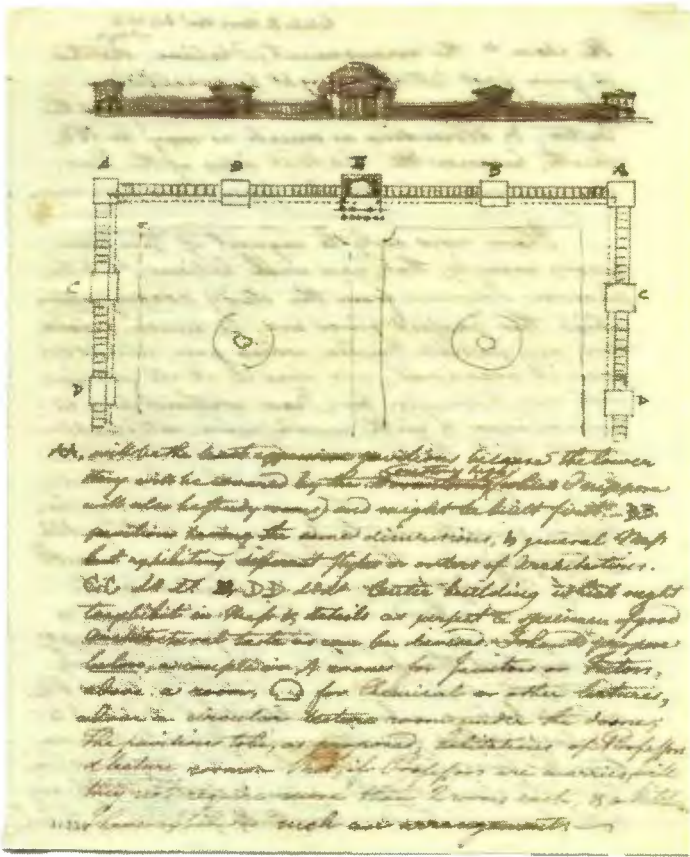 A B E B A
C C
D D
AA, will be the least expensive pavilions because the lower
story will be covered by the
will also be study rooms) and might be built first. BB
pavilions having the same dimensions, & general Mass
but exhibiting different styles or orders of Architecture.
CC do do DD do do Center building which ought
to exhibit in Mass & details as perfect a specimen of good
Architectural taste as can be devised. I should propose
below, a couple or 4 rooms for Janitors or Tutors,
above a room for Chemical or other lectures,
above a circular lecture room under the dome;
The pavilions to be, as proposed, habitations of Professors
& lecture rooms. But, if Professors are married, will
they not require more than 2 rooms each, & a kitchen
such an arrangement